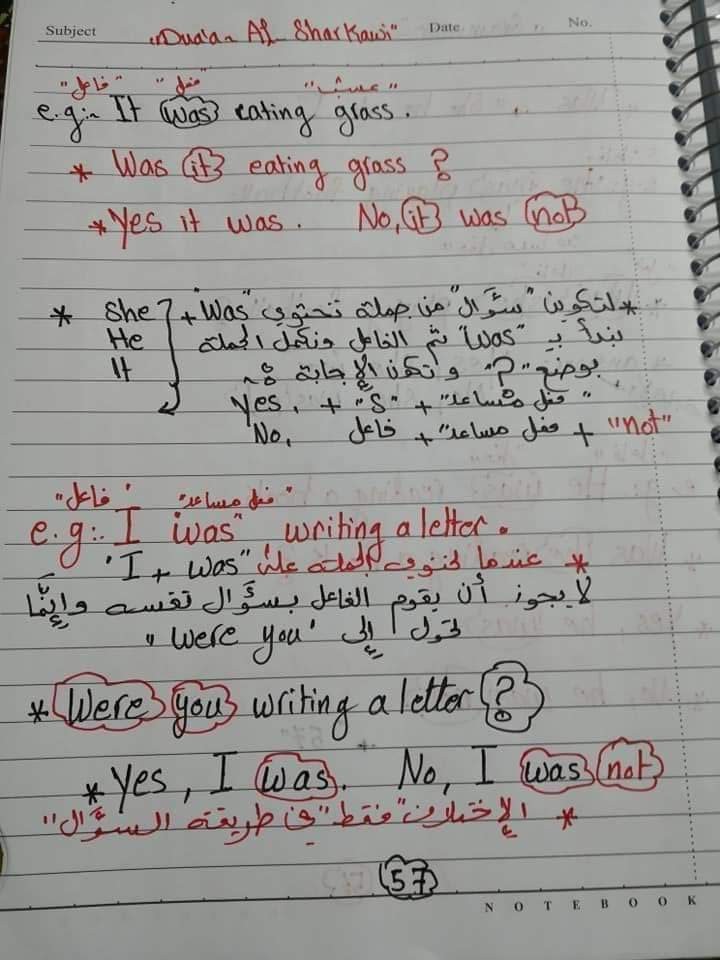 Subject "Dua'a Al Sharkawi" Date No.
"فاعل" "فعل" "عشب"
e.g:- It was eating grass.
* Was it eating grass ?
* Yes it was. No, it was not
* She + "Was" لتكوين "سؤال" من جملة تحتوي *
He نبدأ بـ "Was" ثم الفاعل ونكمل الجملة
It بوضع "?" وتكون الإجابة :
Yes, + "S" + "فعل مساعد"
No, فاعل + فعل مساعد" + "not"
"فاعل" "فعل مساعد"
e.g:. I was" writing a letter.
* عندما تحتوي الجملة على "I + was"
لا يجوز أن يقوم الفاعل بسؤال نفسه وإنما
تحول إلى "were you"
* Were you writing a letter ?
* Yes, I was. No, I was not
* الإختلاف "فقط" في طريقة السؤال"
57
NOTEBOOK